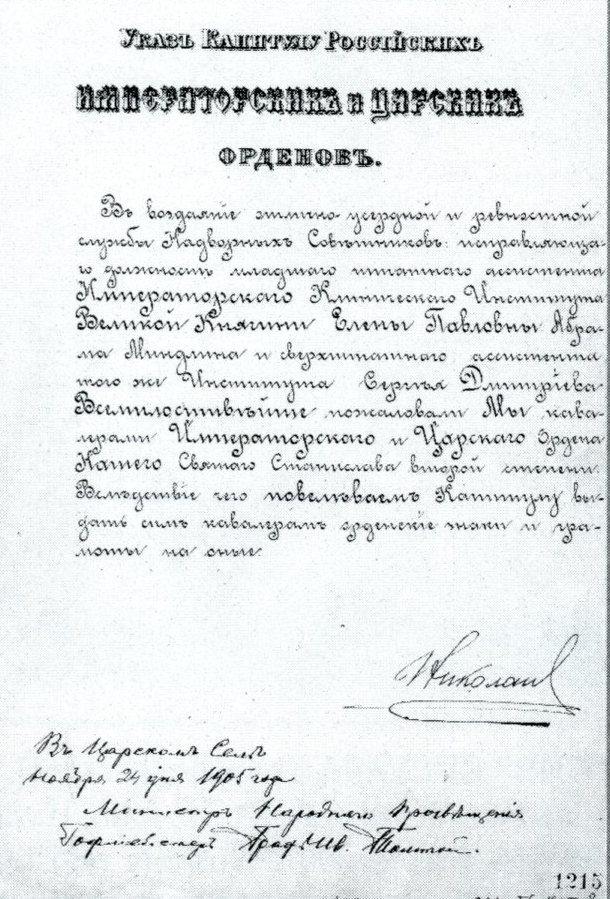 Указъ Капитулу Россійскихъ
ИМПЕРАТОРСКИХЪ и ЦАРСКИХЪ
ОРДЕНОВЪ.
Въ воздаяніе отлично-усердной и ревностной
службы Надворныхъ Совѣтниковъ: исправляюща-
го должность младшаго штатнаго ассистента
Императорскаго Клиническаго Института
Великой Княгини Елены Павловны Абра-
ма Миндлина и сверхштатнаго ассистента
того же Института Сергѣя Дмитріева
Всемилостивѣйше пожаловали Мы кава-
лерами Императорскаго и Царскаго Ордена
Нашего Святаго Станислава второй степени.
Вслѣдствіе чего повелѣваемъ Капитулу вы-
дать симъ кавалерамъ орденскіе знаки и гра-
моты на оные.
Николай
Въ Царскомъ Селѣ
Ноября 24 дня 1905 года
Министръ Народнаго Просвѣщенія
Гофмейстеръ Графъ Ив. Толстой.
1215